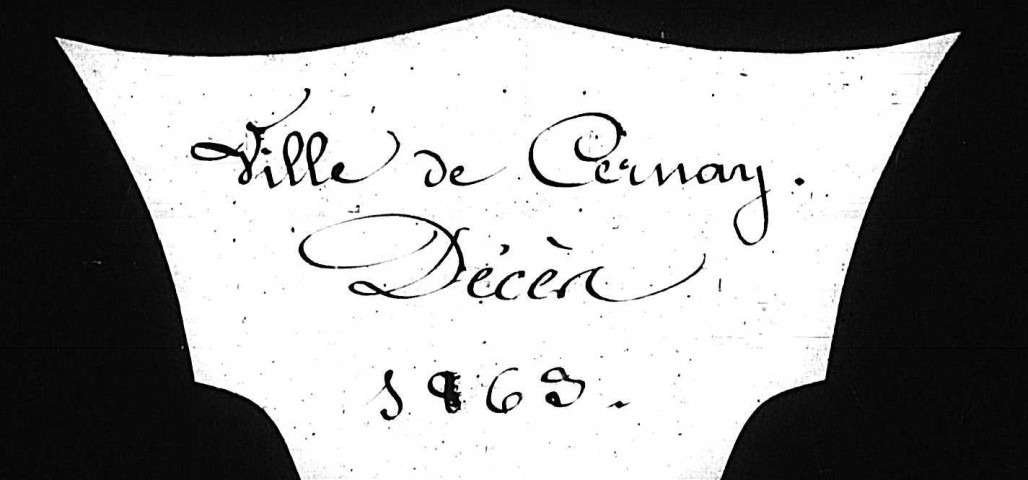 Ville de Cernay.
Décès
1863.